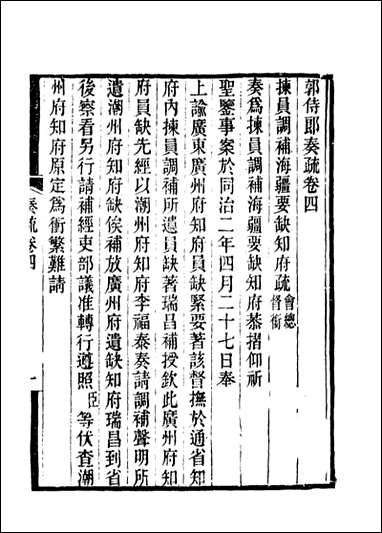 郭侍郎奏疏卷四
揀員調補海疆要缺知府疏會總督銜
奏爲揀員調補海疆要缺知府恭摺仰祈
聖鑒事案於同治二年四月二十七日奉
上諭廣東廣州府知府員缺緊要著該督撫於通省知
府內揀員調補所遺員缺著瑞昌補授欽此廣州府知
府員缺先經以潮州府知府李福泰奏請調補聲明所
遺潮州府知府缺俟補放廣州府遺缺知府瑞昌到省
後察看另行請補經吏部議准轉行遵照臣等伏查潮
州府知府原定爲衝繁難請
奏疏卷四
一